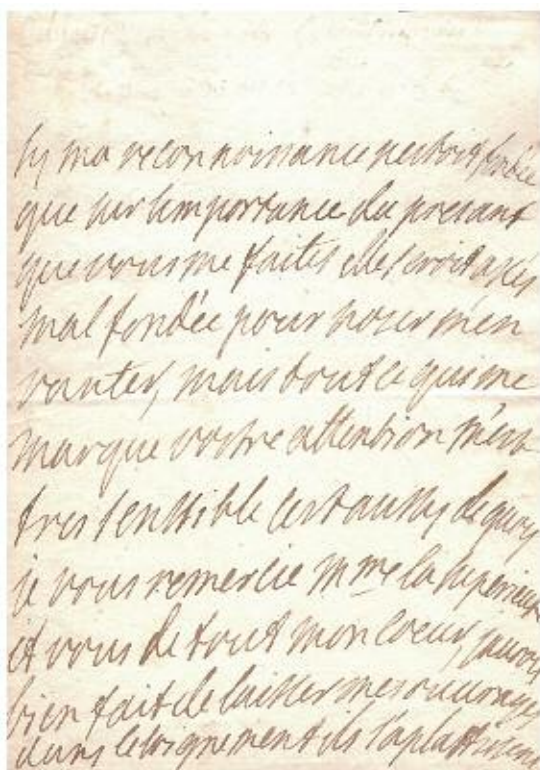 sy ma reconnoissance nestoit fondée
que sur limportance du present
que vous me faites elle seroit assés
mal fondée pour noser men
vanter, mais tout ce qui me
marque vostre attention mest
tres senssible cest aussy de quoy
je vous remercie mme la superieure
et vous de tout mon coeur, jaurois
bien fait de laisser mes ouvrages
dans leloignement ils saplattissent